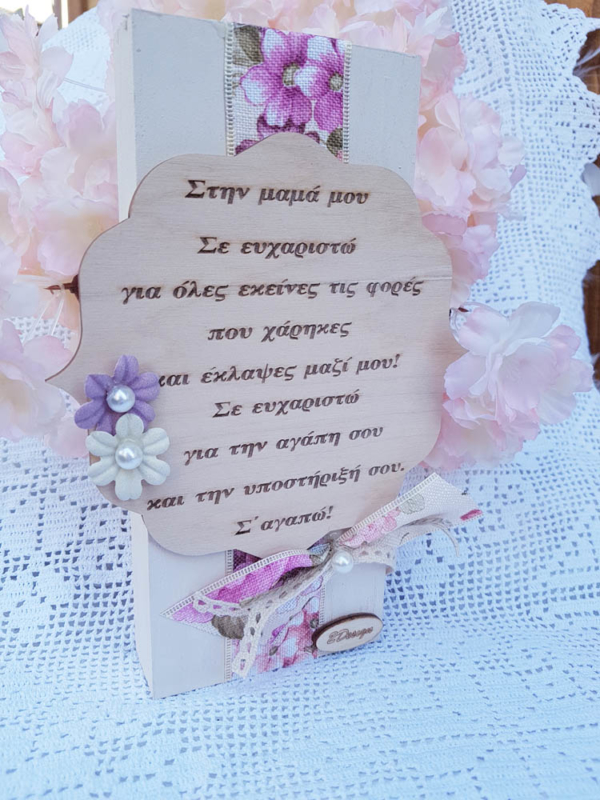 Στην μαμά μου
Σε ευχαριστώ
για όλες εκείνες τις φορές
που χάρηκες
και έκλαψες μαζί μου!
Σε ευχαριστώ
για την αγάπη σου
και την υποστήριξή σου.
Σ' αγαπώ!